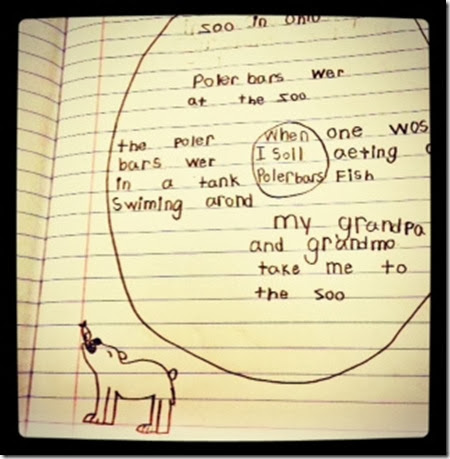 soo in ohio
Poler bars wer
at the soo
the poler
bars wer
in a tank
Swiming arond
when
I soll
Polerbars
one wos
aeting
Fish
my grandpa
and grandmo
take me to
the soo